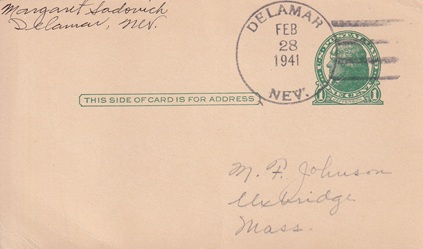 Margaret Sadovich
Delamar, Nev.
DELAMAR
FEB
28
1941
NEV.
THIS SIDE OF CARD IS FOR ADDRESS
1 1
M. F. Johnson
Uxbridge
Mass.